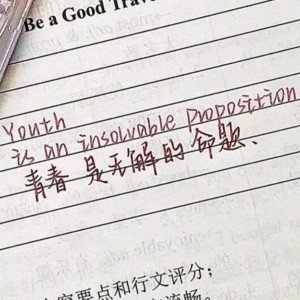 Be a Good Trave
Youth
is an insolvable proposition
青春是无解的命题、
内容要点和行文评分；